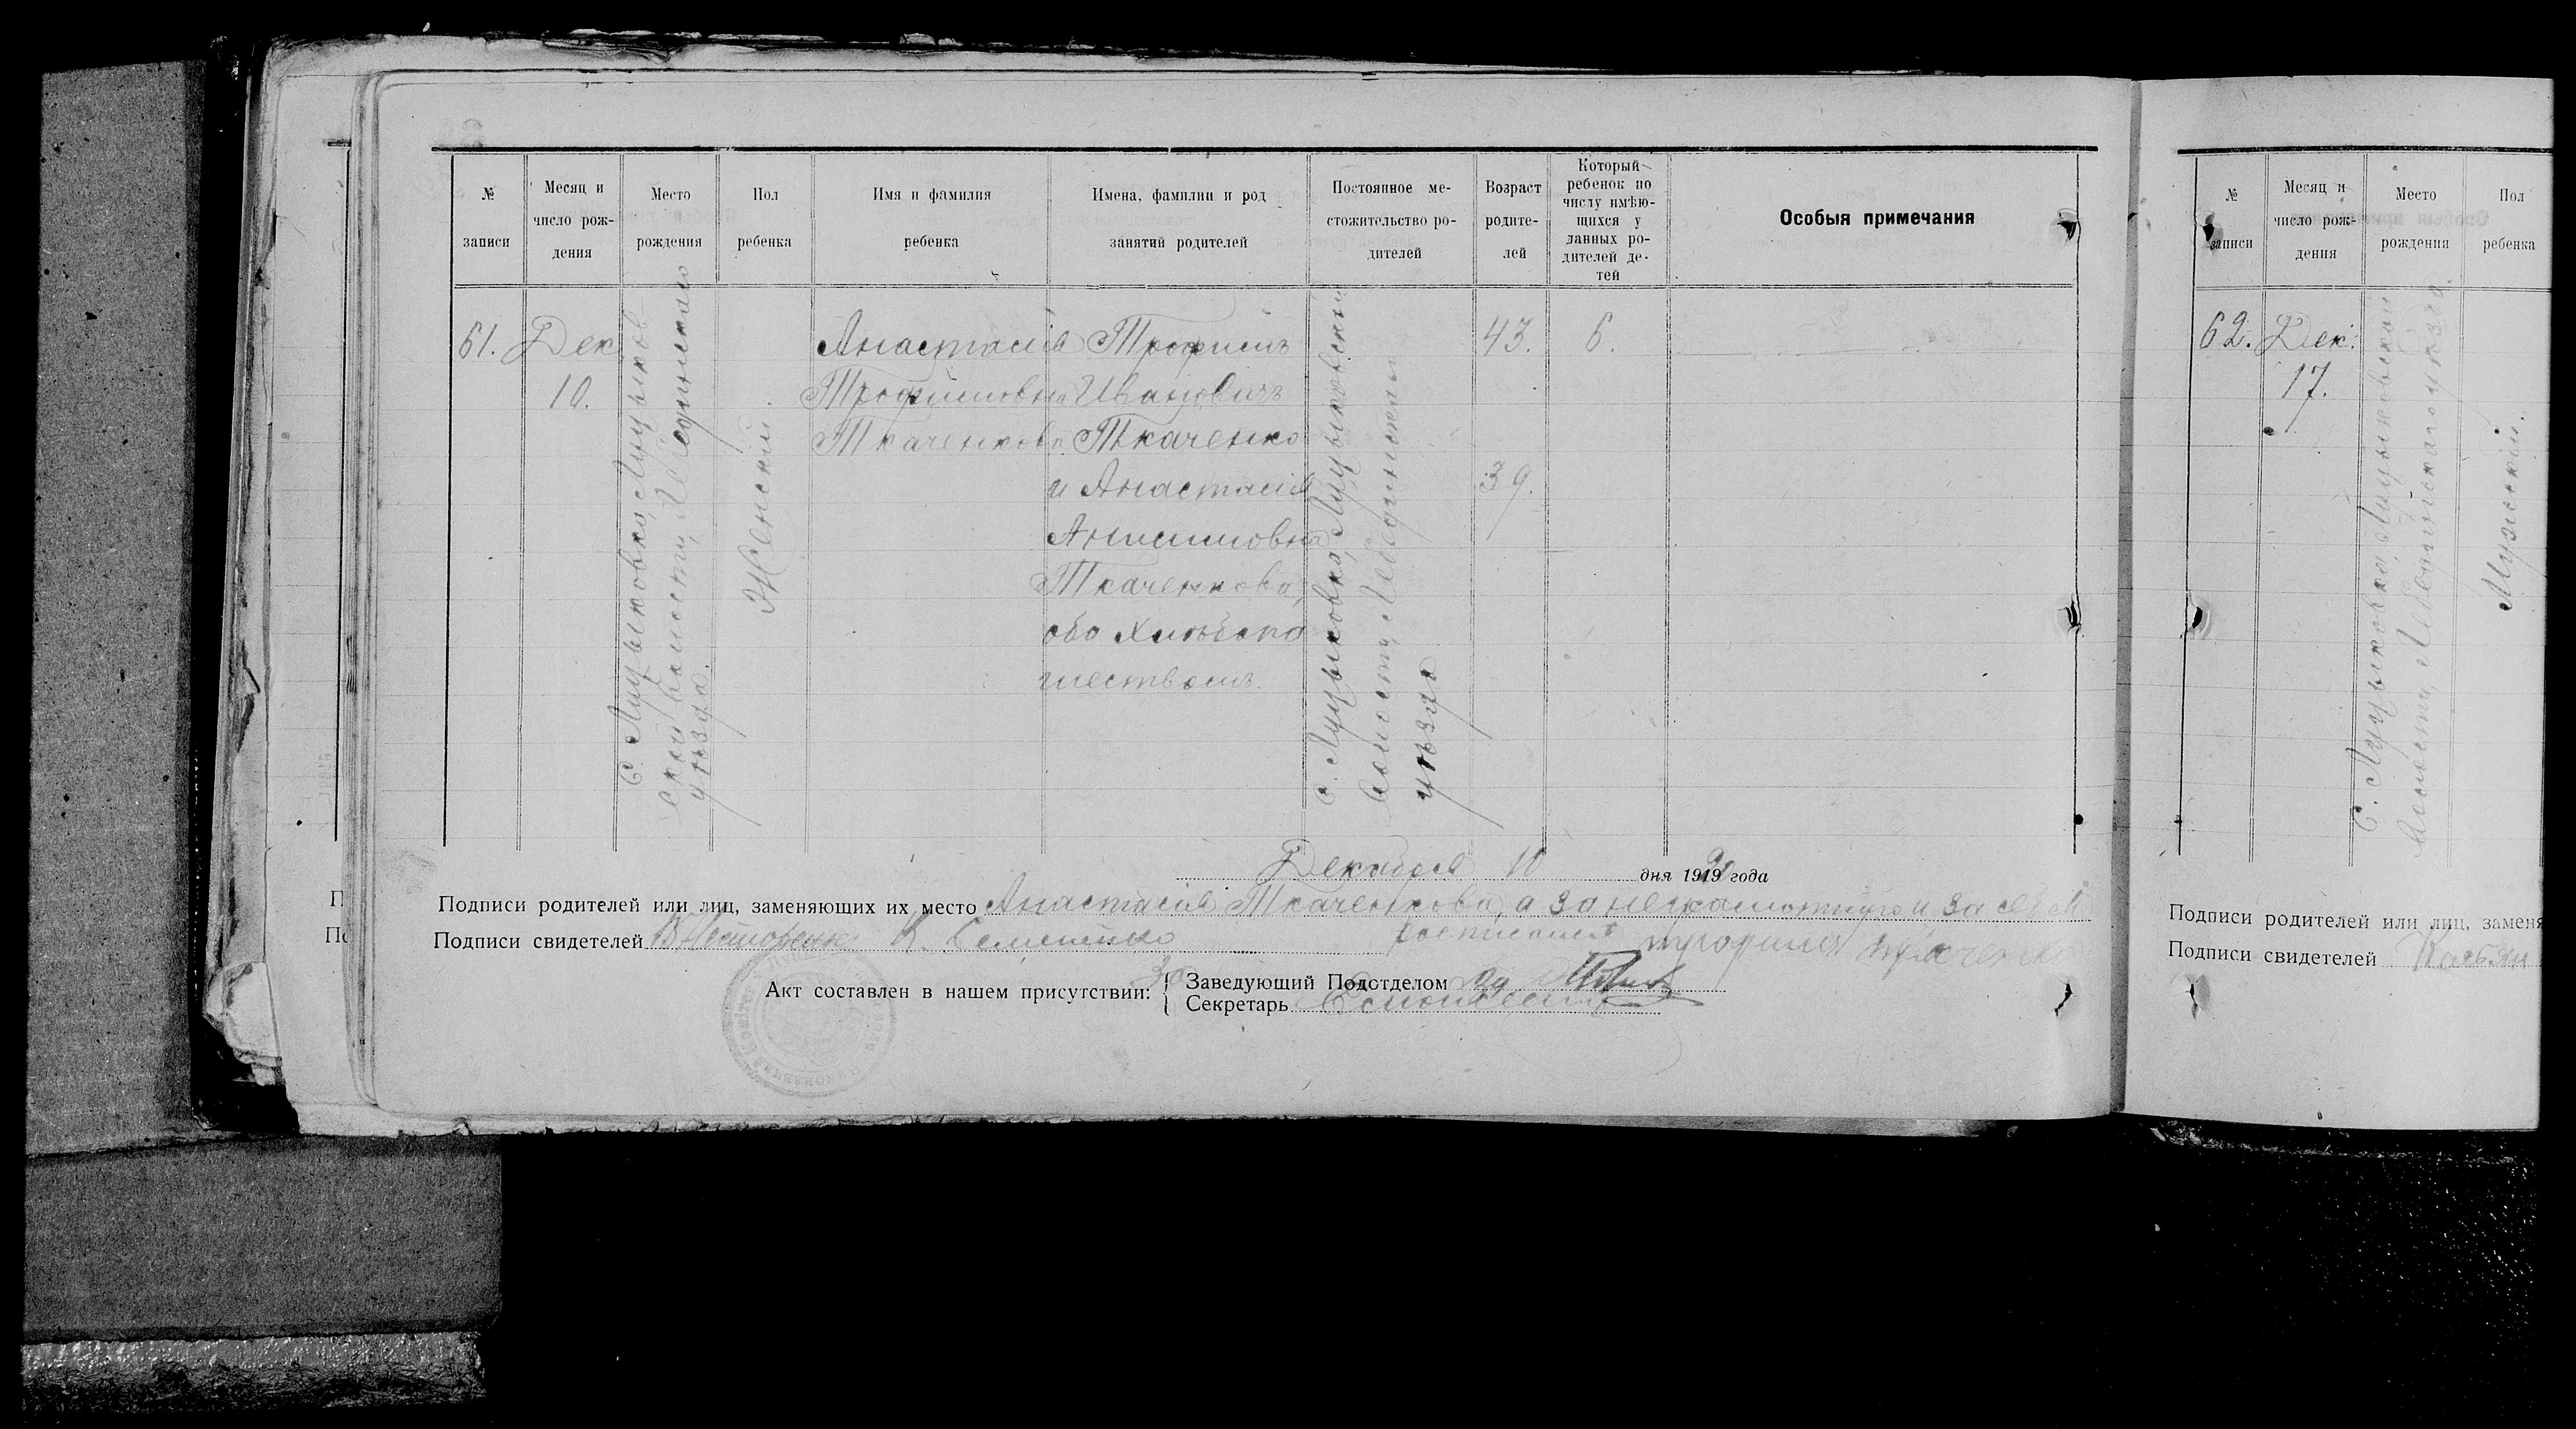 № записи
Месяц и число рождения
Место рождения
Пол ребенка
Имя и фамилия ребенка
Имена, фамилии и род занятий родителей
Постоянное местожительство родителей
Возраст родителей
Который ребенок по числу имѣющихся у данных родителей детей
Особыя примечания
61.
Дек
10.
С. Луцыковка, Луцыков
ской волости, Лебединскаго
уѣзда.
Женский
Анастасія
Трофимовна
Ткаченкова
Трофимъ
Ивановичъ
Ткаченко
и Анастасія
Анисимовна
Ткаченкова,
оба хлѣбопа
шествомъ.
С. Луцыковка, Луцыковской
волости, Лебединскаго
уѣзда
43.
39.
6.
Декабря 10 дня 19 года
Подписи родителей или лиц, заменяющих их место Анастасія Ткаченкова, а за неграмотную и за себя
росписался трофим ткаченко
Подписи свидетелей К. Семененко
Акт составлен в нашем присутствии:
Заведующий Подотделом
Секретарь
№ записи
Месяц и число рождения
Место рождения
Пол ребенка
62.
Дек.
17.
С. Луцыковка, Луцыковской
волости, Лебединскаго уѣзда.
Мужский.
Подписи родителей или лиц, заменя
Подписи свидетелей